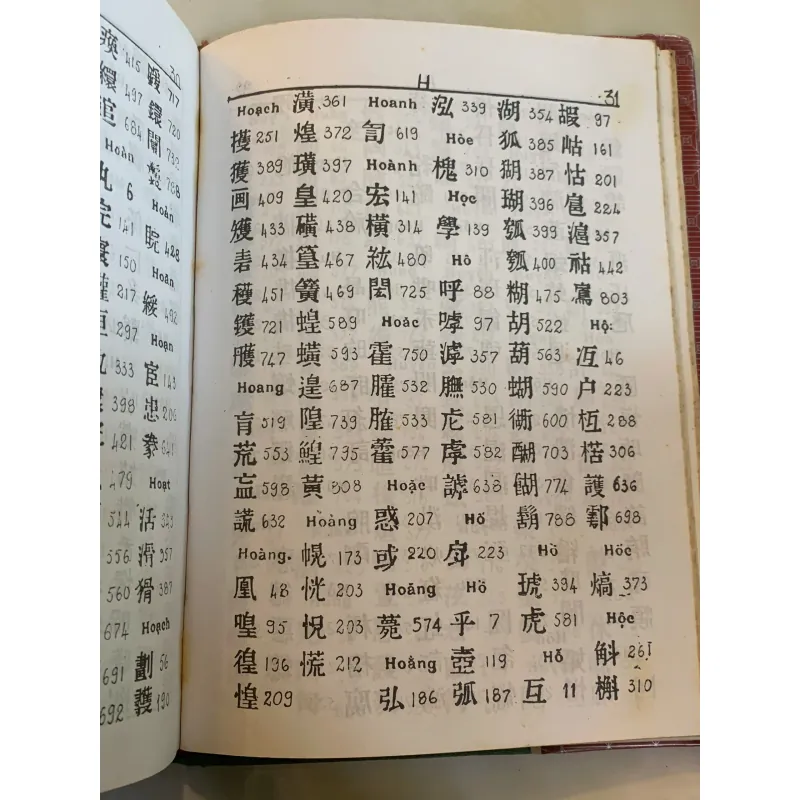 瘓 415 鍰 717
30
繯 497 鐶 720
逭 684 闤 732
Hoàn 鬟 788
丸 6 Hoãn
完 141 睆 428
寰 150 Hoãn
217 緩 492
洹 297 Hoạn
333 宦 143
398 患 206
421 豢 641
479 Hoạt
544 活 343
556 滑 357
560 猾 387
674 Hoạch
691 劃 56
592 頀 190
H
31
Hoạch 潢 361 Hoanh 泓 339 湖 354 嘏 97
擭 251 煌 372 訇 619 Hòe 狐 385 岵 161
獲 389 璜 397 Hoành 槐 310 猢 387 怙 201
画 409 皇 420 宏 141 Học 瑚 396 扈 224
矱 433 磺 438 橫 314 學 139 瓠 399 滬 357
砉 434 篁 467 紘 480 Hô 瓠 400 祜 442
穫 451 簧 469 閎 725 呼 88 糊 475 鳸 803
鑊 721 蝗 589 Hoác 哮 97 胡 522 Hộ:
雘 747 蟥 593 霍 750 滹 357 葫 563 冱 46
Hoang 遑 687 臛 532 膴 530 蝴 590 户 223
肓 519 隍 739 脽 533 虍 581 衚 600 枑 288
荒 553 鰉 795 藿 577 虖 582 醐 703 楛 306
衁 598 黃 808 Hoặc 謼 638 餬 774 護 636
謊 632 Hoàng 惑 207 Hố 鬍 788 鄠 698
Hoàng. 幌 173 或 220 戽 223 Hồ Hốc
凰 48 恍 203 Hoăng Hồ 琥 394 熇 373
喤 95 怳 203 薨 574 乎 7 虎 581 Hộc
徨 196 慌 212 Hoằng 壺 119 Hỗ 斛 261
惶 209 弘 186 弧 187 互 11 槲 310